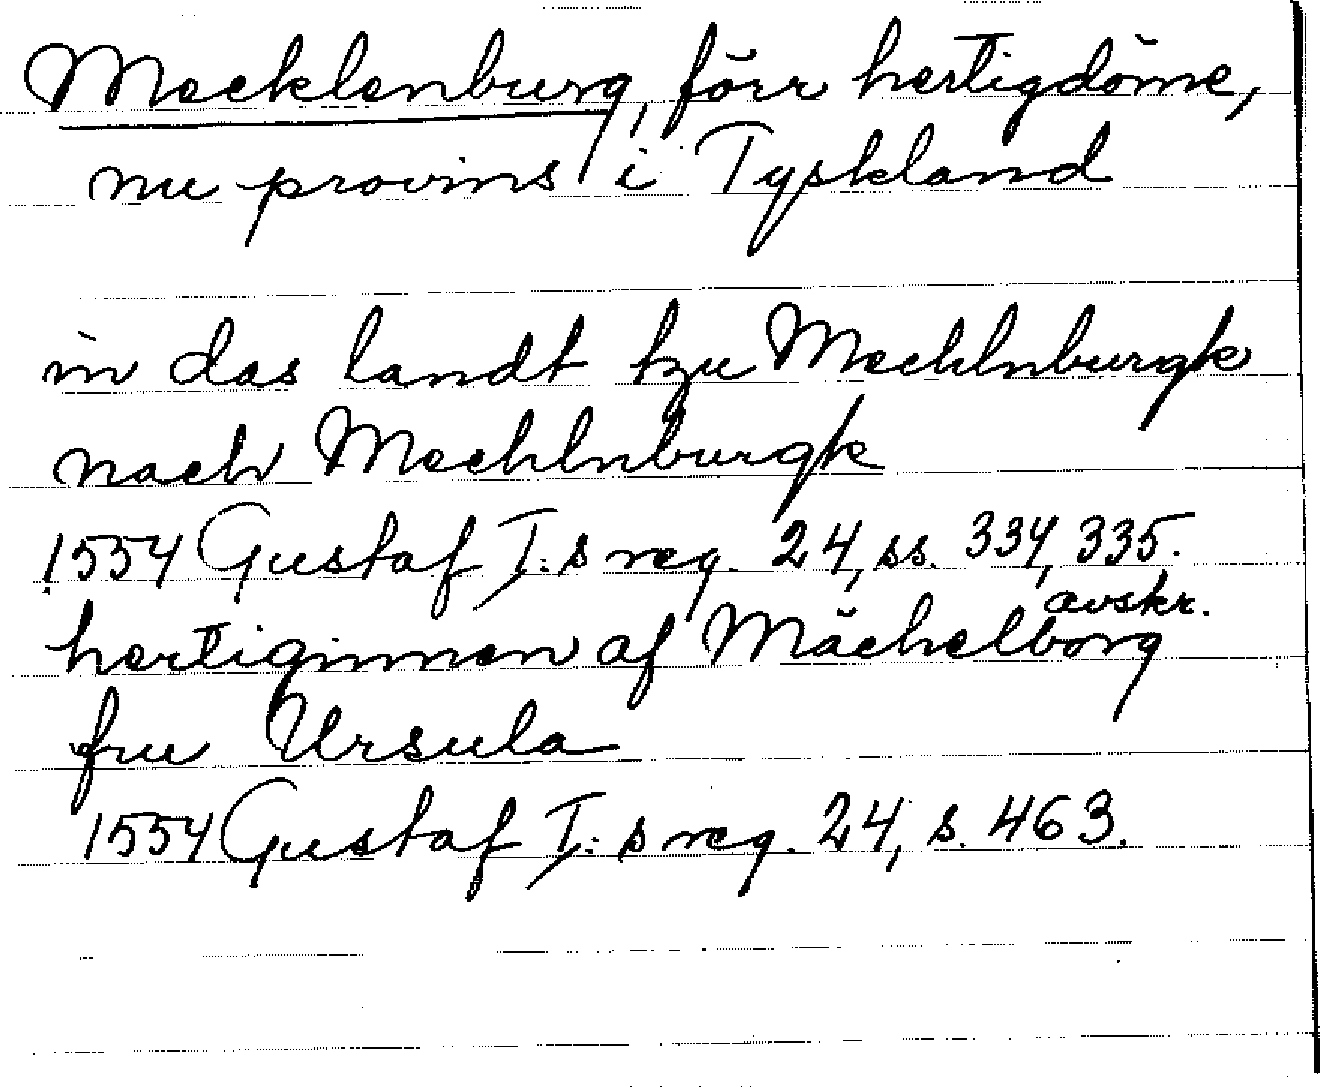 Mecklenburg, förr hertigdöme,
nu provins i Tyskland
in das landt tzu Mechlnburgk
nach Mechlnburgk
1554 Gustaf I:s reg. 24, ss. 334, 335.
avskr.
hertiginnen af Mächelborg
fru Ursula
1554 Gustaf I:s reg. 24, s. 463.